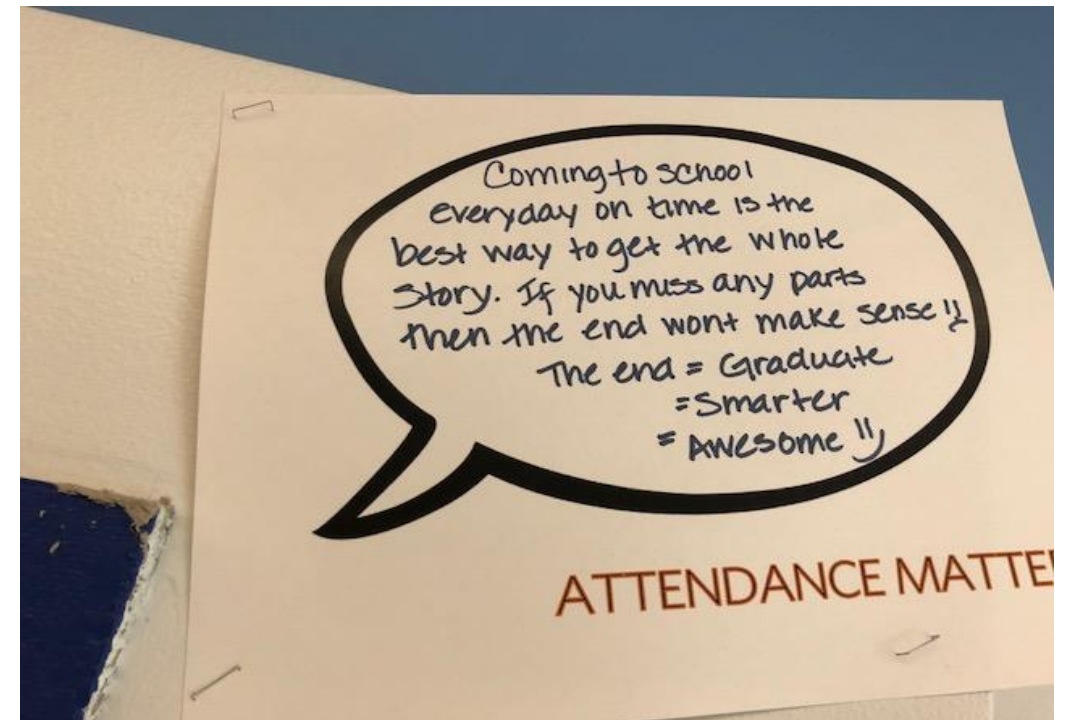 Coming to school
everyday on time is the
best way to get the whole
story. If you miss any parts
then the end wont make sense!!
The end = Graduate
= Smarter
= Awesome!!
ATTENDANCE MATTE